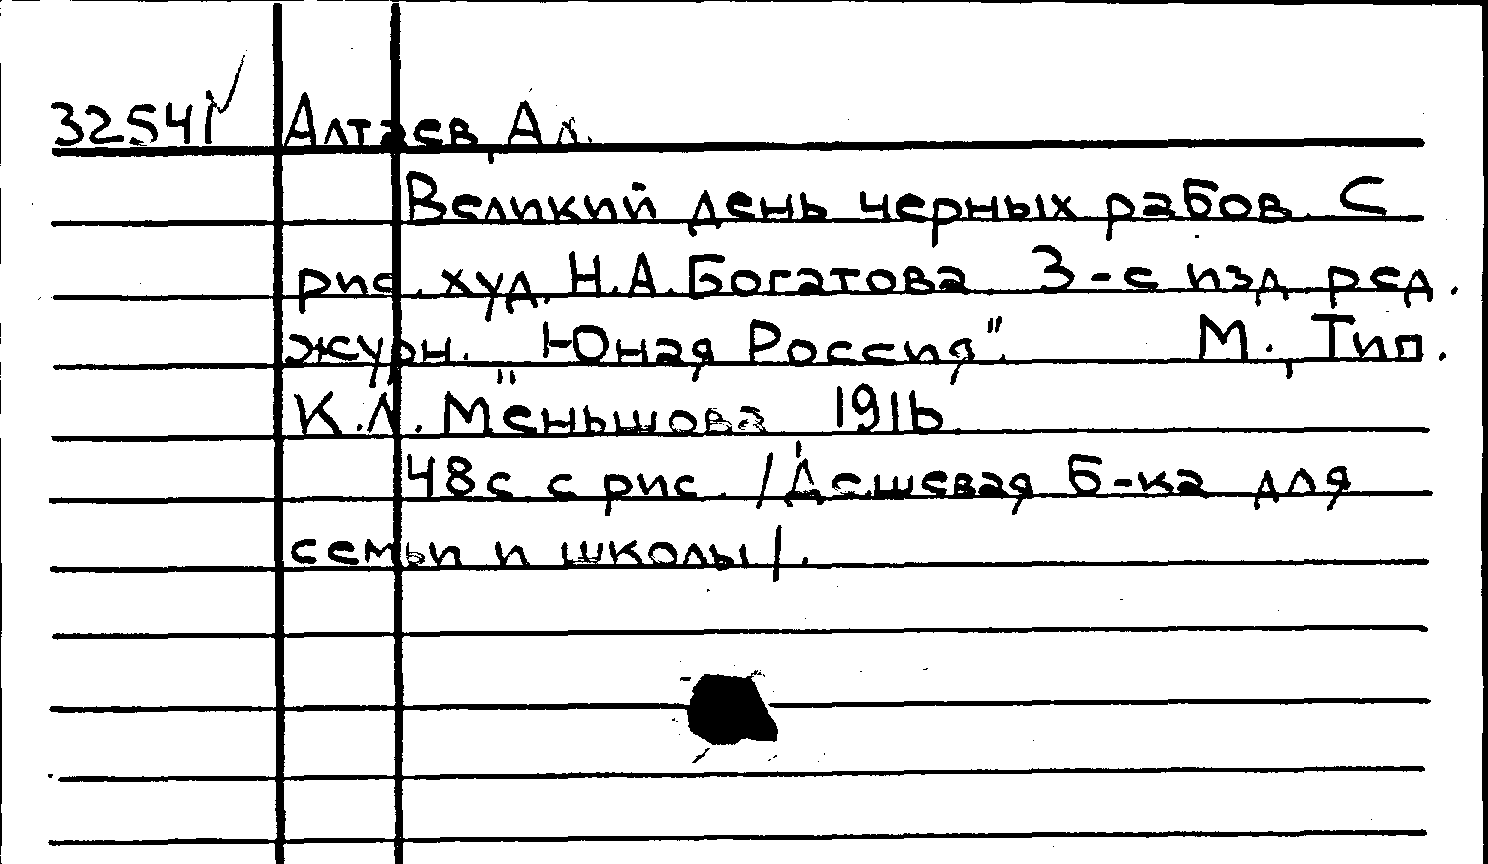 32541 Алтаев, Ал.
Великий день черных рабов. С
рис. худ. Н.А.Богатова. 3-е изд. ред.
журн. "Юная Россия". М., Тип.
К.Л. Меньшова 1916.
48с. с рис. /Дешевая б-ка для
семьи и школы/.